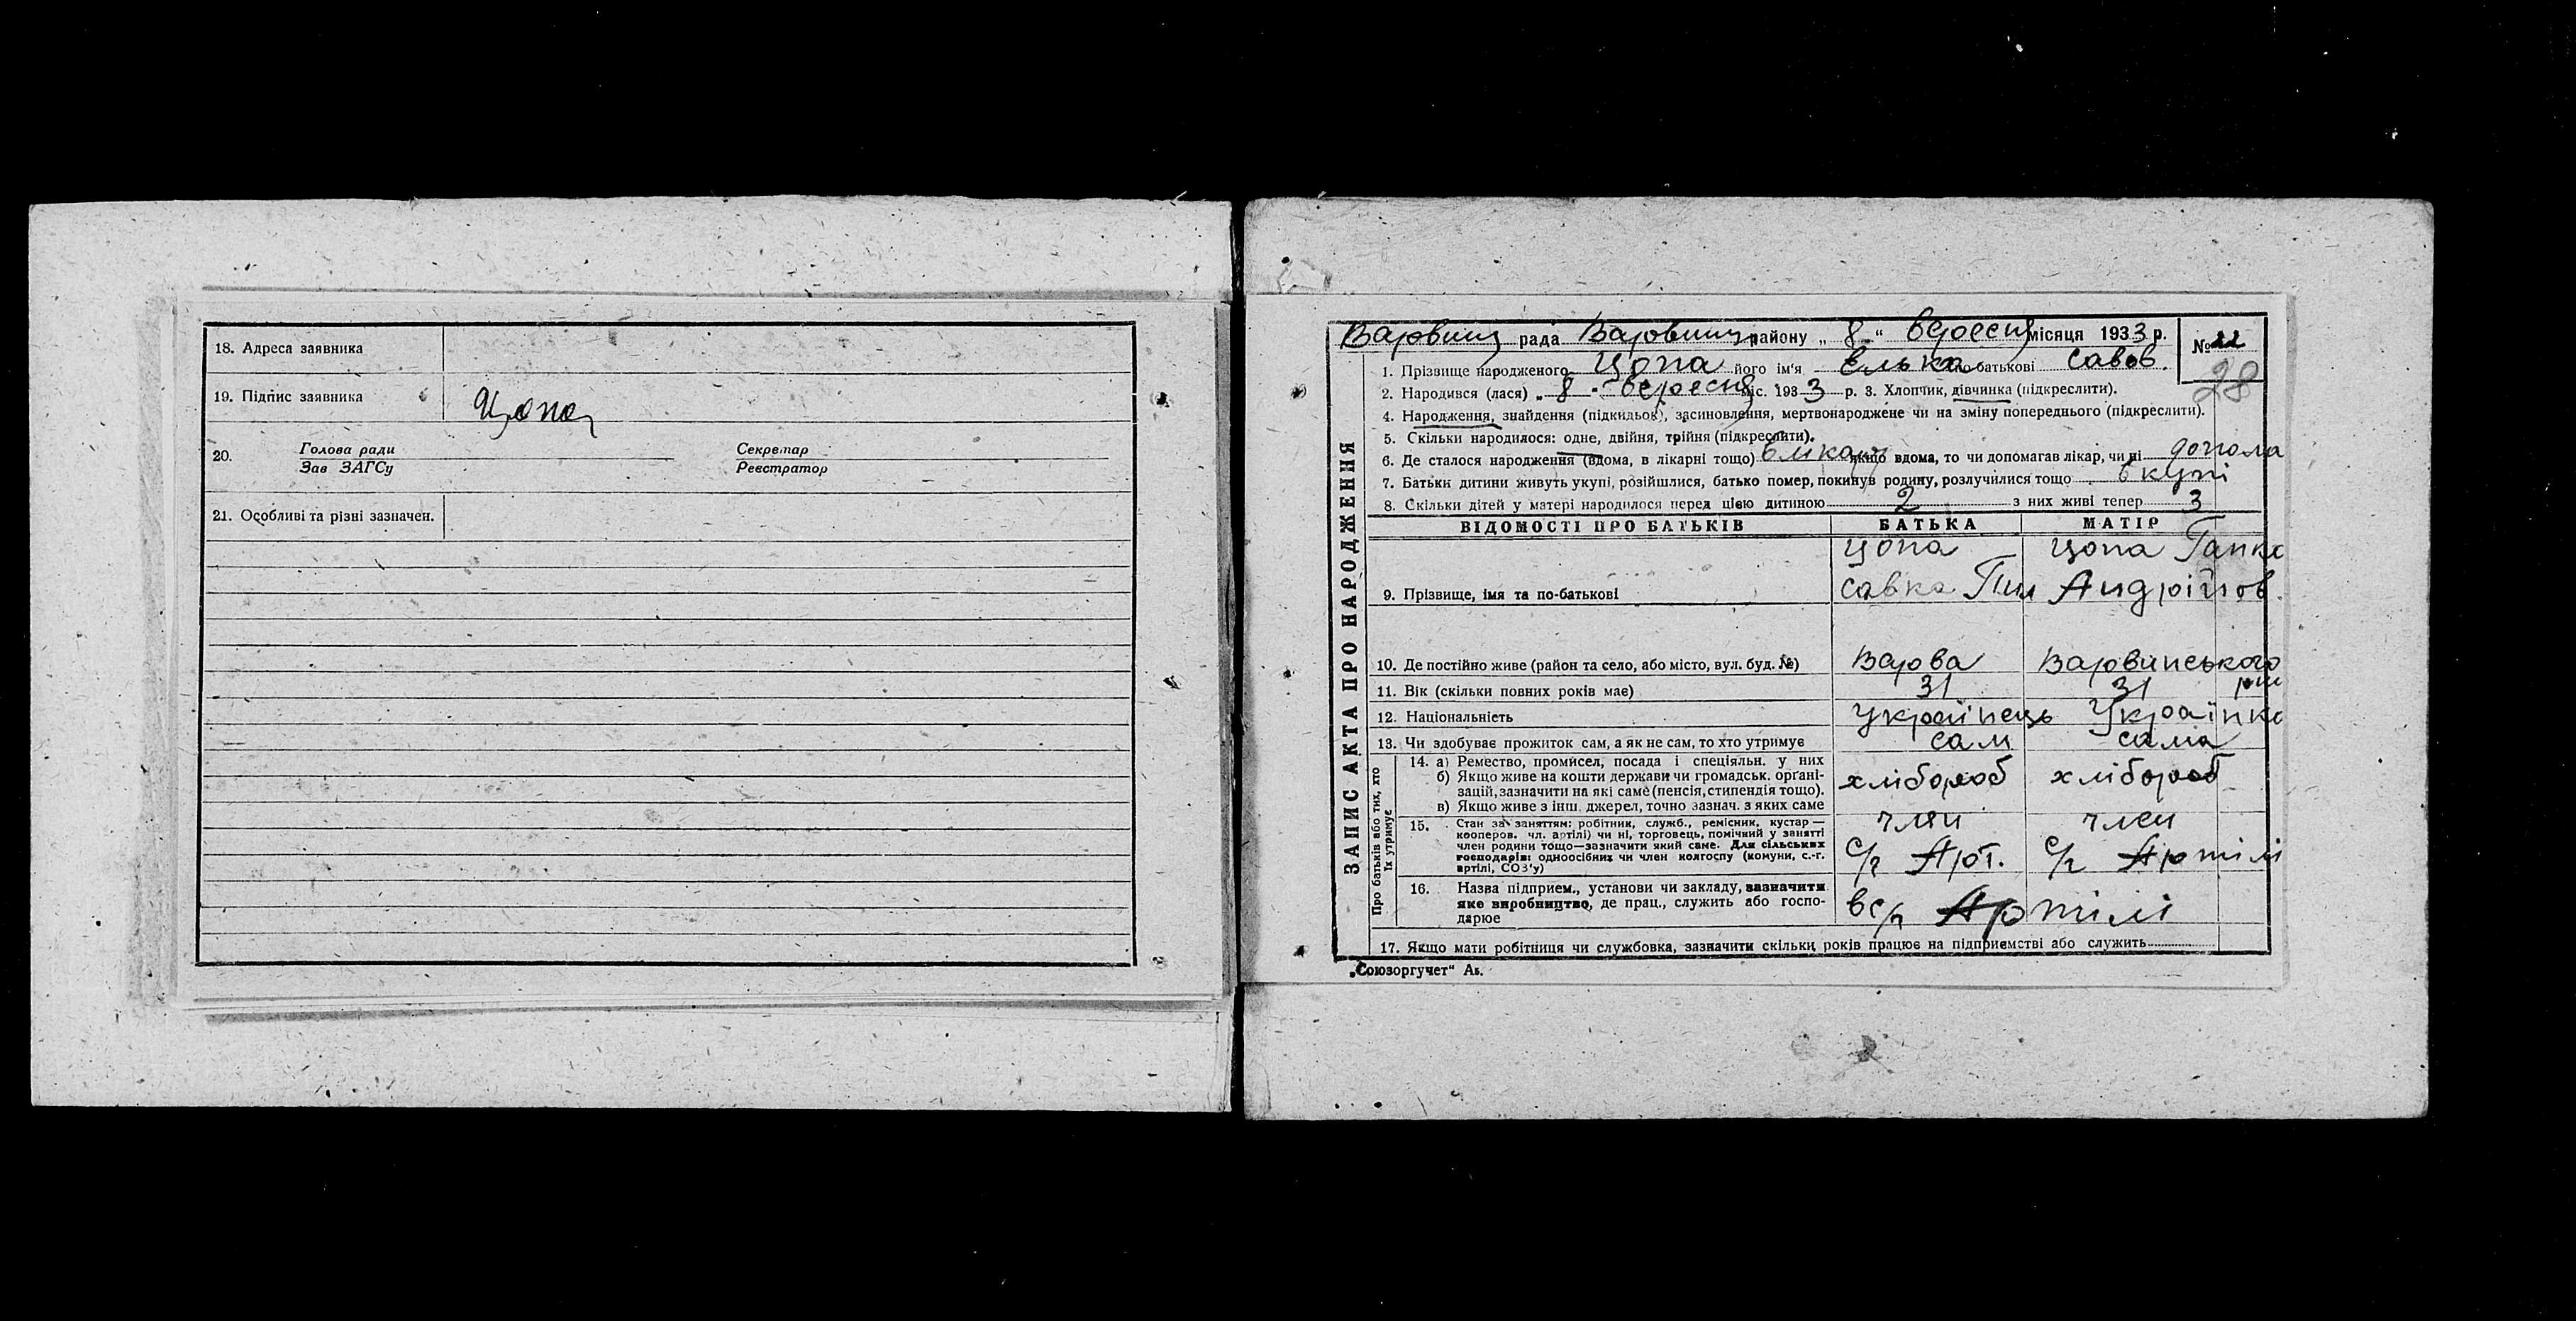 18. Адреса заявника
19. Підпис заявника Цопа
20. Голова ради Секретар
Зав ЗАГСу Реєстратор
21. Особливі та різні зазначен.
ЗАПИС АКТА ПРО НАРОДЖЕННЯ
рада району „ 8 “ вересня місяця 1933 р.
№ 22
28
1. Прізвище народженого Цопа його ім'я Елька по батькові Савов.
2. Народився (лася) „ 8 “ вересня міс. 1933 р. 3. Хлопчик, дівчинка (підкреслити).
4. Народження, знайдення (підкидьок), засиновлення, мертвонароджене чи на зміну попереднього (підкреслити).
5. Скільки народилося: одне, двійня, трійня (підкреслити).
6. Де сталося народження (вдома, в лікарні тощо) в лікар якщо вдома, то чи допомагав лікар, чи ні допома
7. Батьки дитини живуть укупі, розійшлися, батько помер, покинув родину, розлучилися тощо вкупі
8. Скільки дітей у матері народилося перед цією дитиною 2 з них живі тепер 3
ВІДОМОСТІ ПРО БАТЬКІВ БАТЬКА МАТІР
Цопа Цопа Гапка
9. Прізвище, імя та по-батькові Савка Пил Андрійов.
10. Де постійно живе (район та село, або місто, вул. буд. №) Варва Варвинського
р-ну
11. Вік (скільки повних років має) 31 31
12. Національність Українець Українка
13. Чи здобуває прожиток сам, а як не сам, то хто утримує сам сама
Про батьків або тих, хто їх утримує
14. а) Ремество, промисел, посада і спеціяльн. у них
б) Якщо живе на кошти держави чи громадськ. органі-
зацій, зазначити на які саме (пенсія, стипендія тощо). хлібороб хлібороб
в) Якщо живе з інш. джерел, точно зазнач. з яких саме
15. Стан за заняттям: робітник, служб., ремісник, кустар — член член
кооперов. чл. артілі) чи ні, торговець, помічний у занятті
член родини тощо—зазначити який саме. Для сільських
господарів: одноосібних чи член колгоспу (комуни, с.-г. с/г Арт. с/г Артілі
артілі, СОЗ'у)
16. Назва підприєм., установи чи закладу, зазначити
яке виробництво, де прац., служить або госпо- в с/г Артілі
дарює
17. Якщо мати робітниця чи службовка, зазначити скільки років працює на підприємстві або служить
„Союзоргучет“